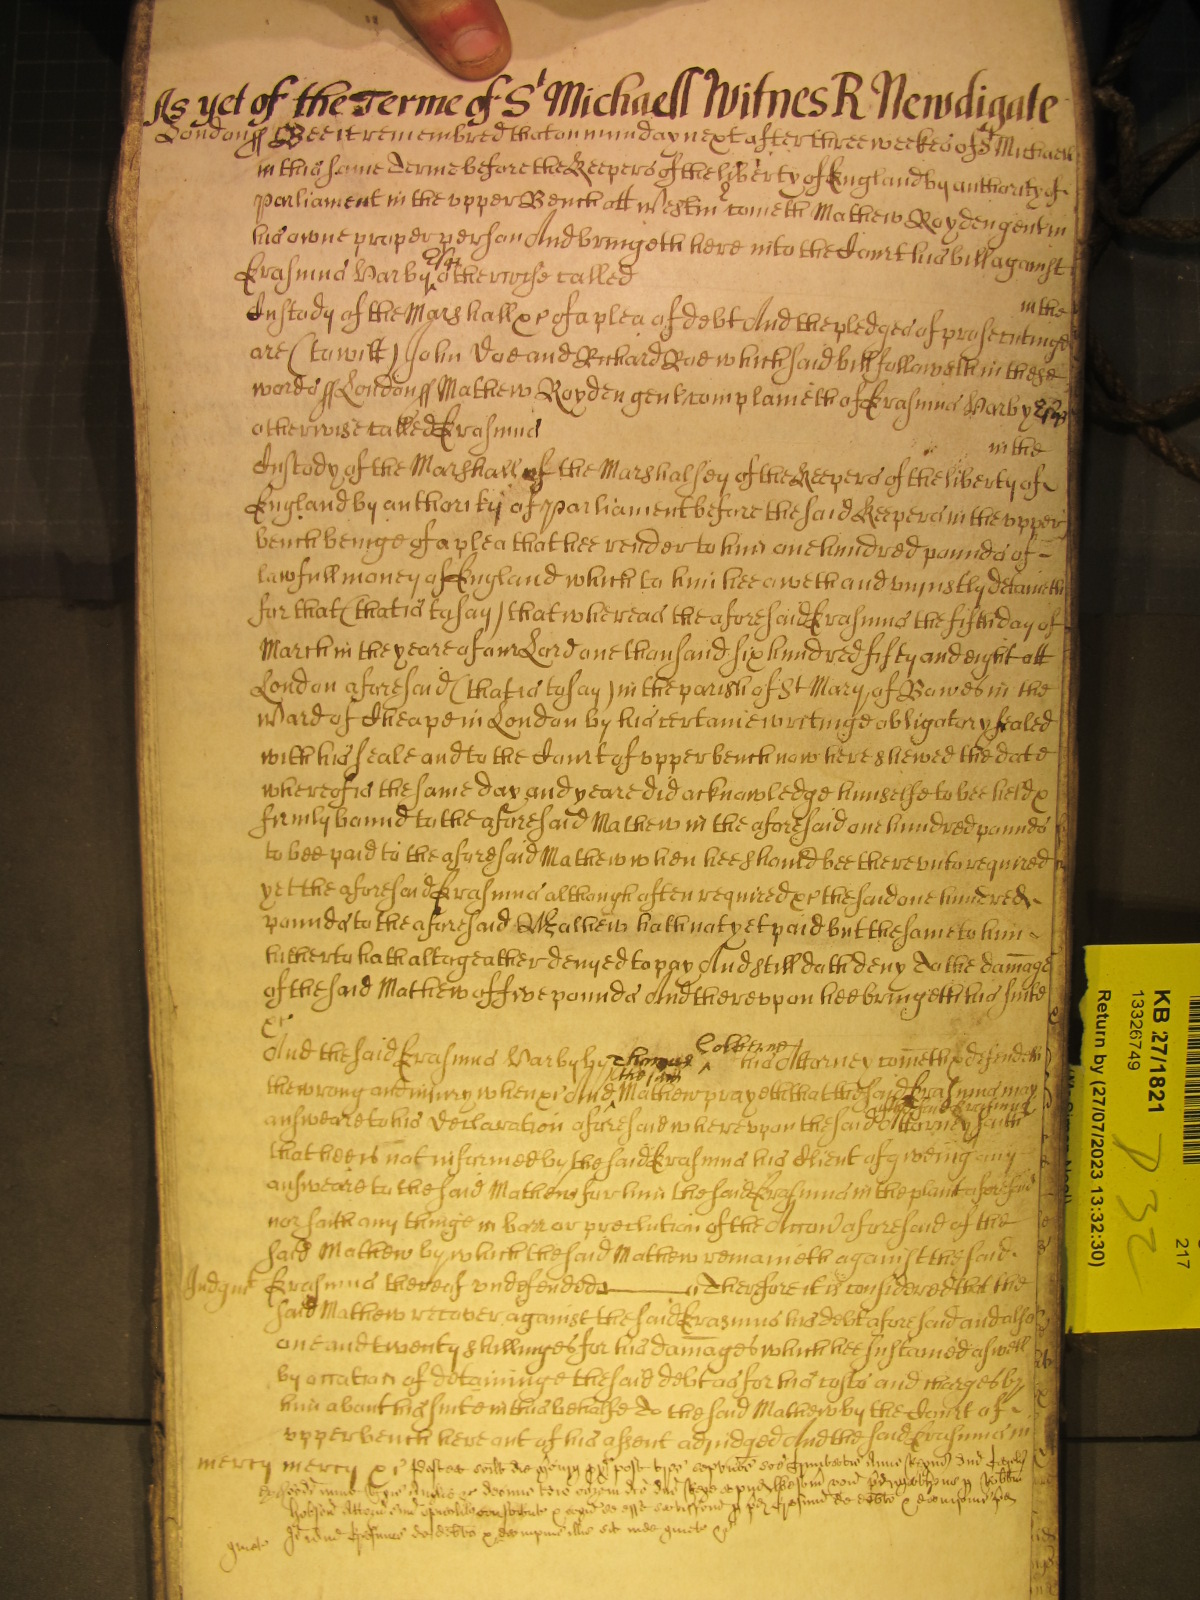 As yet of the Terme of St Michaell Witnes R Newdigate
London ss Bee it remembred that on munday next after three weekes of St Michaell
in this same Terme before the Keepers of the liberty of England by authority of
Parliament in the upper Bench att Westm cometh Mathew Royden gent in
his owne proper person And bringeth here into the Court his bill against
Erasmus Darby Esqr otherwise called
in the
Custody of the Marshall xc of a plea of debt And the pledges of prosecutinge
are (to witt) John Doe and Richard Roe which said bill followeth in these
words ss London ss Mathew Royden gent complaineth of Erasmus Darby Esqr
otherwise called Erasmus
in the
Custody of the Marshall of the Marshalsey of the Keepers of the liberty of
England by authority of Parliament before the said Keepers in the upper
bench beinge of a plea that hee render to him one hundred pounds of
lawfull money of England which to him hee oweth and uniustly detaineth
for that (that is to say) that whereas the aforesaid Erasmus the fifth day of
March in the yeare of our Lord one thousand six hundred fifty and eight att
London aforesaid (that is to say) in the parish of St Mary of Bowes in the
Ward of Cheape in London by his certaine writinge obligatory sealed
with his seale and to the Court of upper bench now here shewed the date
whereof is the same day and yeare did acknowledge himselfe to bee held x
firmly bound to the aforesaid Mathew in the aforesaid one hundred pounds
to bee paid to the aforesaid Mathew when hee should bee thereunto required
yet the aforesaid Erasmus although often required xc the said one hundred
pounds to the aforesaid Mathew hath not yet paid but the same to him
hitherto hath altogeather denyed to pay And still doth deny To the damage
of the said Mathew of five pounds And thereupon hee bringeth his suite
xc
And the said Erasmus Darby by Thomas Colborne his Attorney cometh x defendeth
the wrong and iniury when xc And the said Mathew prayeth that the said Erasmus may
answeare to his Declaration aforesaid whereupon the said Attorney of the said Erasmus saith
that hee is not informed by the said Erasmus his Client of giveing any
answeare to the said Mathew for him the said Erasmus in the plaint aforesaid
nor saith any thinge in barr or preclution of the Accon aforesaid of the
said Mathew by which the said Mathew remaineth against the said
Judgmt Erasmus thereof undefended Therefore it is considered that the
said Mathew recover against the said Erasmus his debt aforesaid and also
one and twenty shillinges for his damages which hee sustained aswell
by occation of detaininge the said debt as for his costs and charges by
him about his suite in this behalfe To the said Mathew by the Court of
upper bench here out of his assent adiudged And the said Erasmus in
mercy mercy xc Postea scilt die
KB 27/1821
13326749
Return by (27/07/2023 13:32:30)
217
P 32